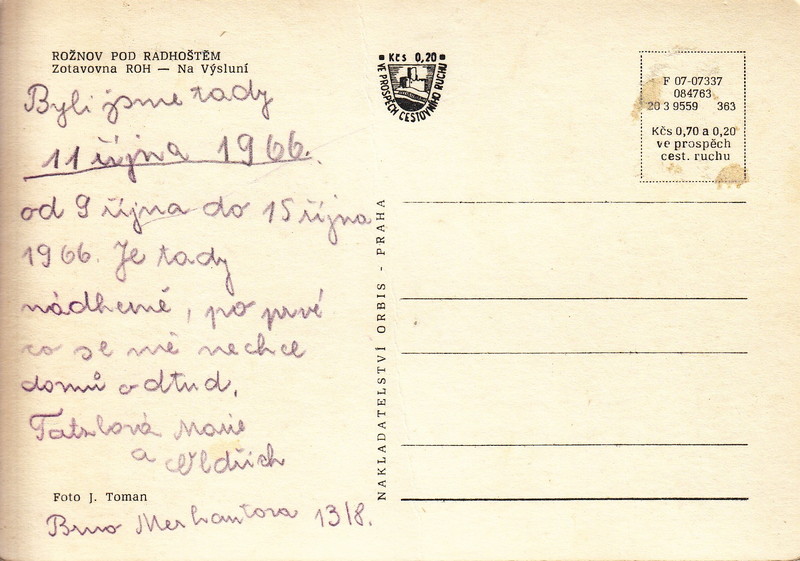 ROŽNOV POD RADHOŠTĚM
Zotavovna ROH — Na Výsluní
Byli jsme tady
11 října 1966.
od 9 října do 15 října
1966. Je tady
nádherně, po prvé
co se mě nechce
domů odtud.
Marie
a Oldřich
Foto J. Toman
Brno Merhautova 13/8.
Kčs 0,20
VE PROSPĚCH CESTOVNÍHO RUCHU
NAKLADATELSTVÍ ORBIS - PRAHA
F 07-07337
084763
20 3 9559 363
Kčs 0,70 a 0,20
ve prospěch
cest. ruchu